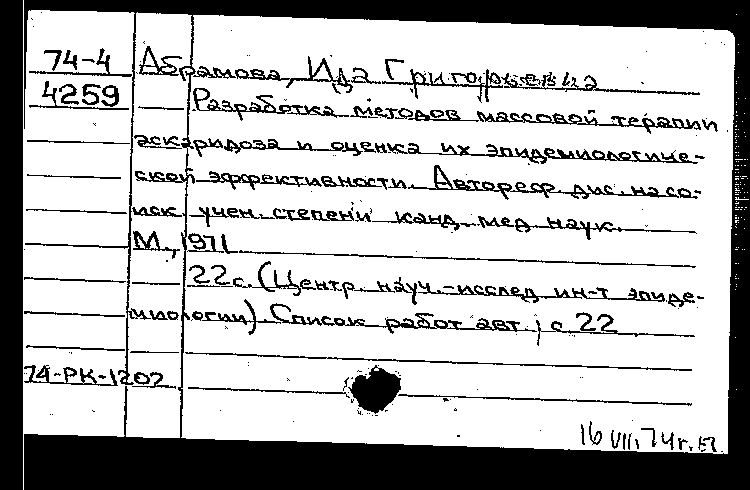 74-4 Абрамова, Ида Григорьевна
4259 Разработка методов массовой терапии
аскаридоза и оценка их эпидемиологиче-
ской эффективности. Автореф. дис. на со-
иск. учен. степени канд. мед. наук.
М., 1971
22 с. (Центр. науч.-исслед. ин-т эпиде-
миологии). Список работ авт.; с. 22
74-РК-1207
16 VII. 74 г.